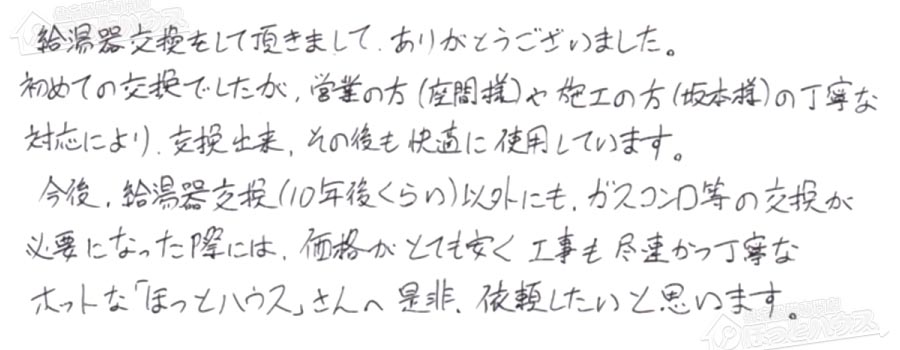 給湯器交換をして頂きまして、ありがとうございました。
初めての交換でしたが、営業の方(座間様)や施工の方(坂本様)の丁寧な
対応により、交換出来、その後も快適に使用しています。
今後、給湯器交換(10年後くらい)以外にも、ガスコンロ等の交換が
必要になった際には、価格がとても安く工事も尽速かつ丁寧な
ホットな「ほっとハウス」さんへ是非、依頼したいと思います。
ほっとハウス